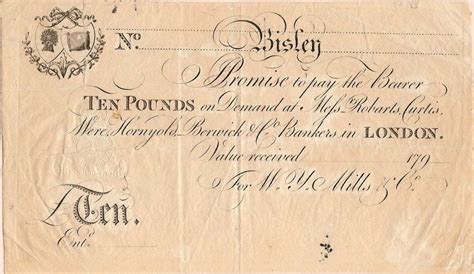 No. Bisley
Promise to pay the Bearer
TEN POUNDS on Demand at Mess. Robarts, Curtis,
Were, Hornyold, Berwick & Co. Bankers in LONDON.
Value received 179
For W. Y. Mills & Co.
£Ten.
Entd.